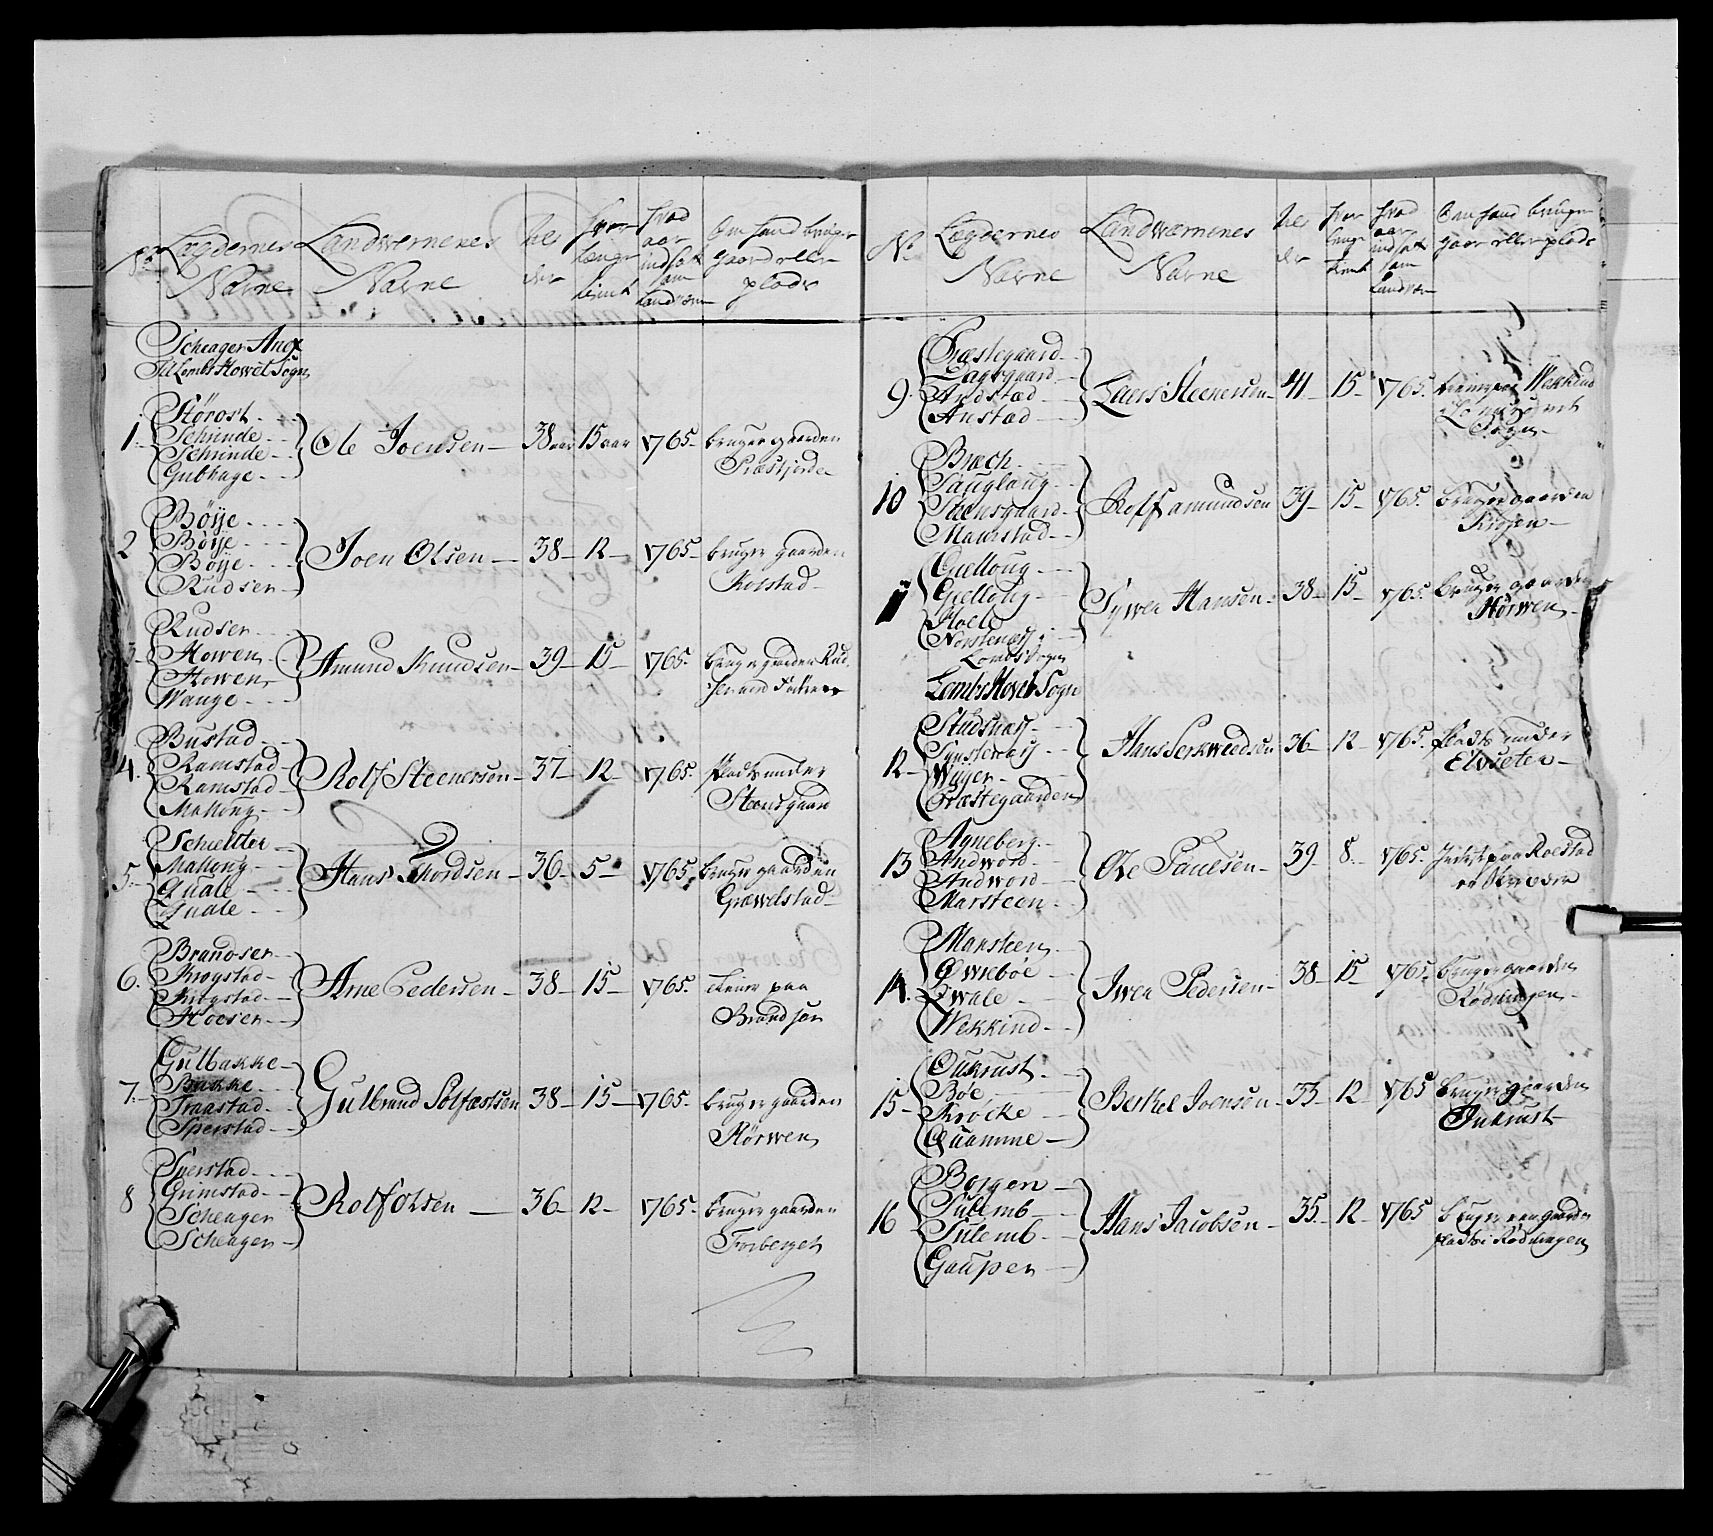 No Lægdernes Navne Landwærnenes Navne Alder hvor længe tient hvad aar indsat som Landværn Om hand bruger gaard eller plads
Scheager Anex
Til Lombs Howet Sogn
1. Störost
Schiinde
Schiinde
Gubhage
Ole Joensen 38 aar 15 aar 1765 bruger gaarden
2 Böÿe
Böÿe
Böÿe
Rudsen
Joen Olsen 38 12 1765 bruger gaarden
Kolstad
3. Rudsen
Howen
Howen
Wange
Amund Knudsen 39 15 1765 bruger gaarden Rud
4. Bustad
Ramstad
Ramstad
Mallong
Rolf Steenersen 37 12 1765 Plads under
Steensgaard
5. Schielter
Mallong
Quale
Quale
Hans Thordsen 36 5 1765 bruger gaarden
Græwelstad
6. Brandser
Krogstad
Krogstad
Hoesen
Arne Pedersen 38 15 1765 tiener paa
Brandsør
7. Gulbakke
Bakke
Traastad
Sperstad
Gulbrand Solfæstsen 38 15 1765 bruger gaarden
Hörwen
8 Sperstad
Grimstad
Scheager
Scheagen
Rolf Olsen 36 12 1765 bruger gaarden
Forberget
No Lægdernes Navne Landwærnenes Navne Alder hvor længe tient hvad aar indsat som Landværn Om hand bruger gaar eller plads
9. Præstegaard
Dagsgaard
Andstad
Anstad
Laers Steenersen 41 15 1765
Sogn
10 Bræch
Sauglaug
Steensgaard
Maurstad
Rolf Samundsen 39 15 1765 bruger gaarden
11 Gielloug
Giellong
Hoele
Norstenæss i
Lombs Sogn
Sywer Hansen 38 15 1765 bruger gaarden
Hörwen
Lombs Howet Sogn
12 Studsnæss
Synstenæss
Wigen
Præstegaarden
Hans Serkweedsen 36 12 1765 plads under
Elvseter
13 Agneberg
Andword
Andword
Marsteen
Ole Paulsen 39 8 1765
14. Marsteen
Öwreböe
Qwale
Wekkind
Iwer Pedersen 38 15 1765 bruger gaarden
Rödningen
15 Oukrust
Böe
Kröcke
Quamme
Beskel Joensen 33 12 1765 bruger gaarden
16 Borgen
Sulemb
Sulemb
Gaupen
Hans Jacobsen 35 12 1765
plads i Rödningen